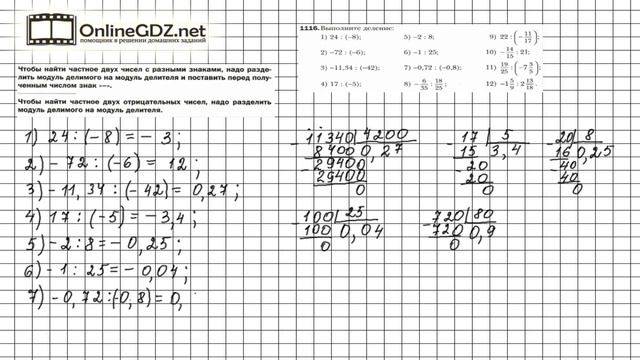 OnlineGDZ.net
помощник в решении домашних заданий
Чтобы найти частное двух чисел с разными знаками, надо разде-
лить модуль делимого на модуль делителя и поставить перед полу-
ченным числом знак «–».
Чтобы найти частное двух отрицательных чисел, надо разделить
модуль делимого на модуль делителя.
1116. Выполните деление:
1) 24 : (–8); 5) –2 : 8; 9) 22 : (–11/17);
2) –72 : (–6); 6) –1 : 25; 10) –14/15 : 21;
3) –11,34 : (–42); 7) –0,72 : (–0,8); 11) 19/25 : (–7 3/5);
4) 17 : (–5); 8) –6/35 : 18/25; 12) –1 5/9 : 2 13/18.
1) 24 : (–8) = – 3 ;
2) – 72 : (–6) = 12 ;
3) – 11,34 : (– 42) = 0,27 ;
4) 17 : (–5) = – 3,4 ;
5) – 2 : 8 = – 0,25 ;
6) – 1 : 25 = – 0,04 ;
7) – 0,72 : (–0,8) = 0,
11340 4200
8400 0,27
29400
29400
0
17 5
15 3,4
20
20
0
20 8
16 0,25
40
40
0
100 25
100 0,04
0
720 80
720 0,9
0